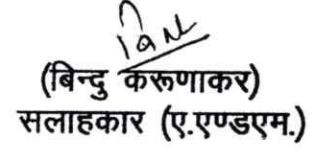 (बिन्दु करूणाकर)
सलाहकार (ए.एण्डएम.)